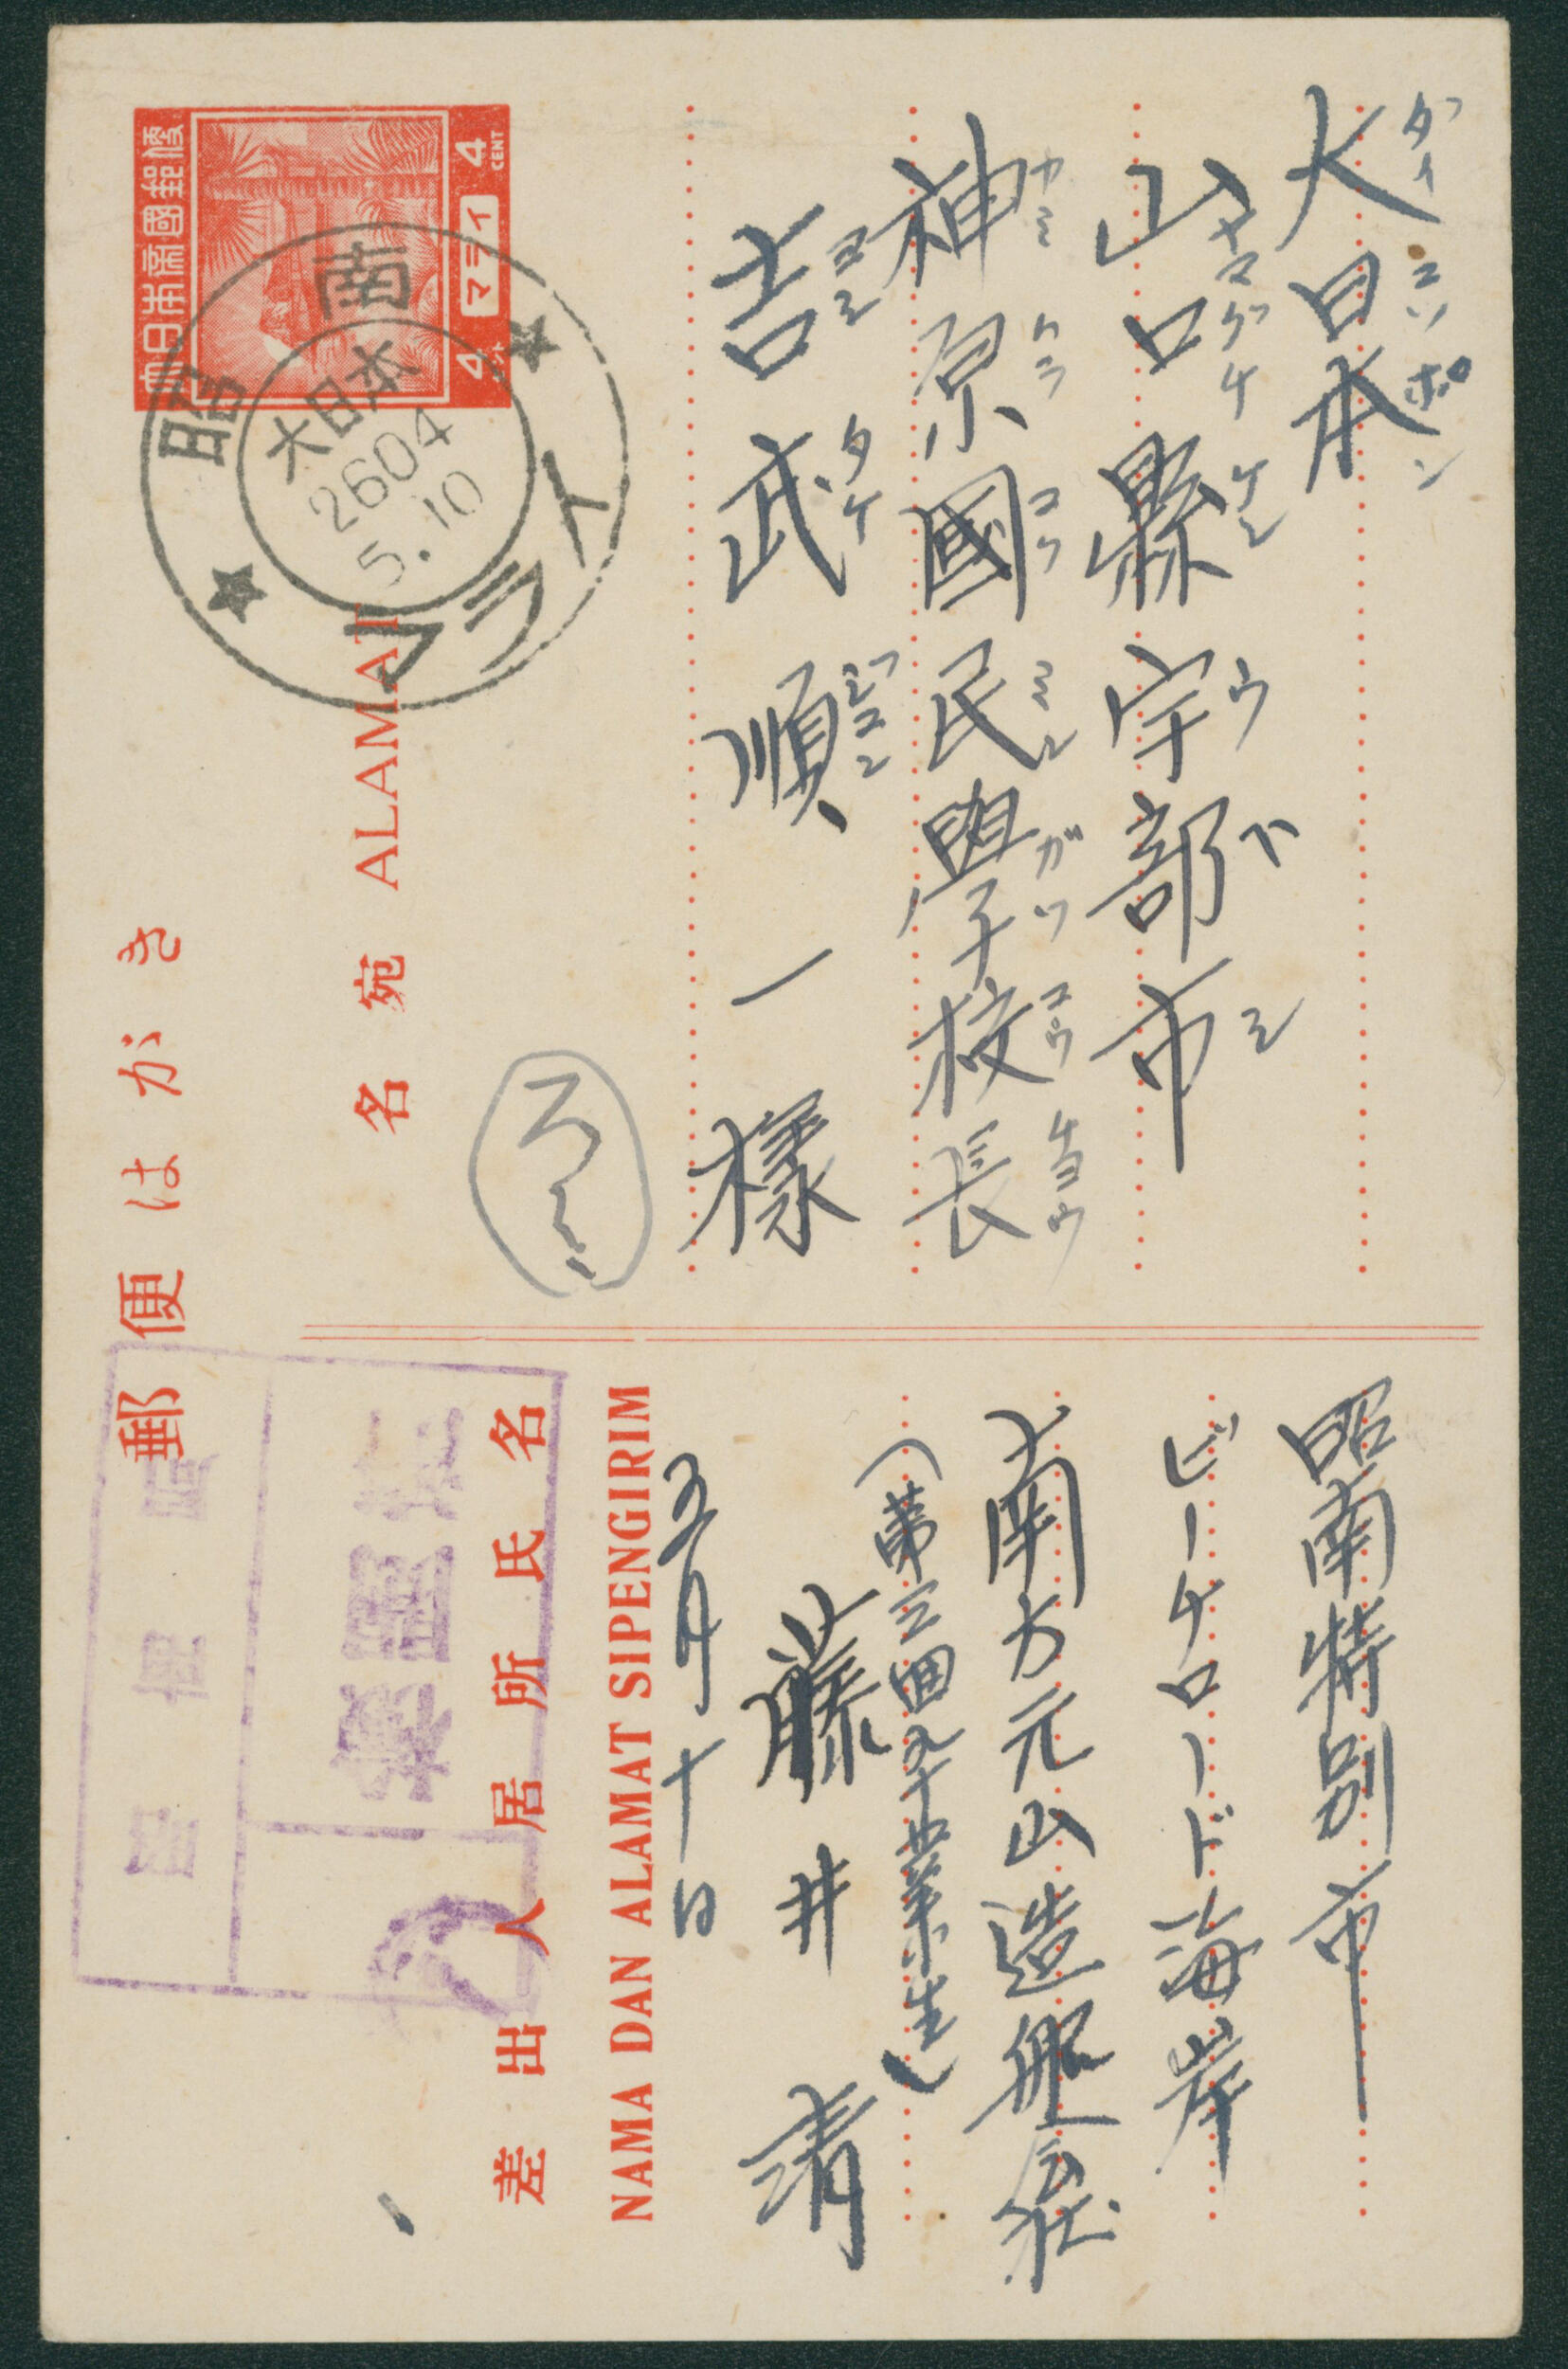 郵便はがき
大日本帝國郵便
4セント マライ 4 CENT
昭南
大日本
2604
5.10
マライ
名宛 ALAMAT
大日本
ダイニッポン
山口縣宇部市
ヤマグチケンウベシ
神原國民學校長
吉武順一様
ヨシタケジュン
差出人居所氏名
NAMA DAN ALAMAT SIPENGIRIM
昭南特別市
ビーチロード海岸
南方元山造船会社
藤井清
五月十日